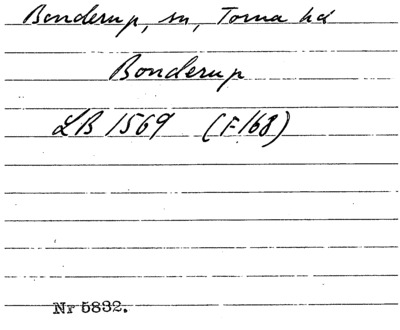 Bonderup, sn, Torna hd
Bonderup
LB 1569 (F168)
Nr 5832.